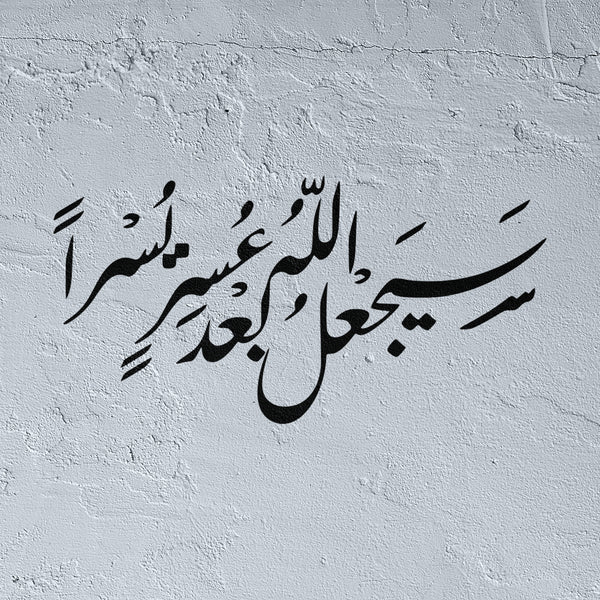 سَيَجْعَلُ اللّٰهُ بَعْدَ عُسْرٍ يُسْراً